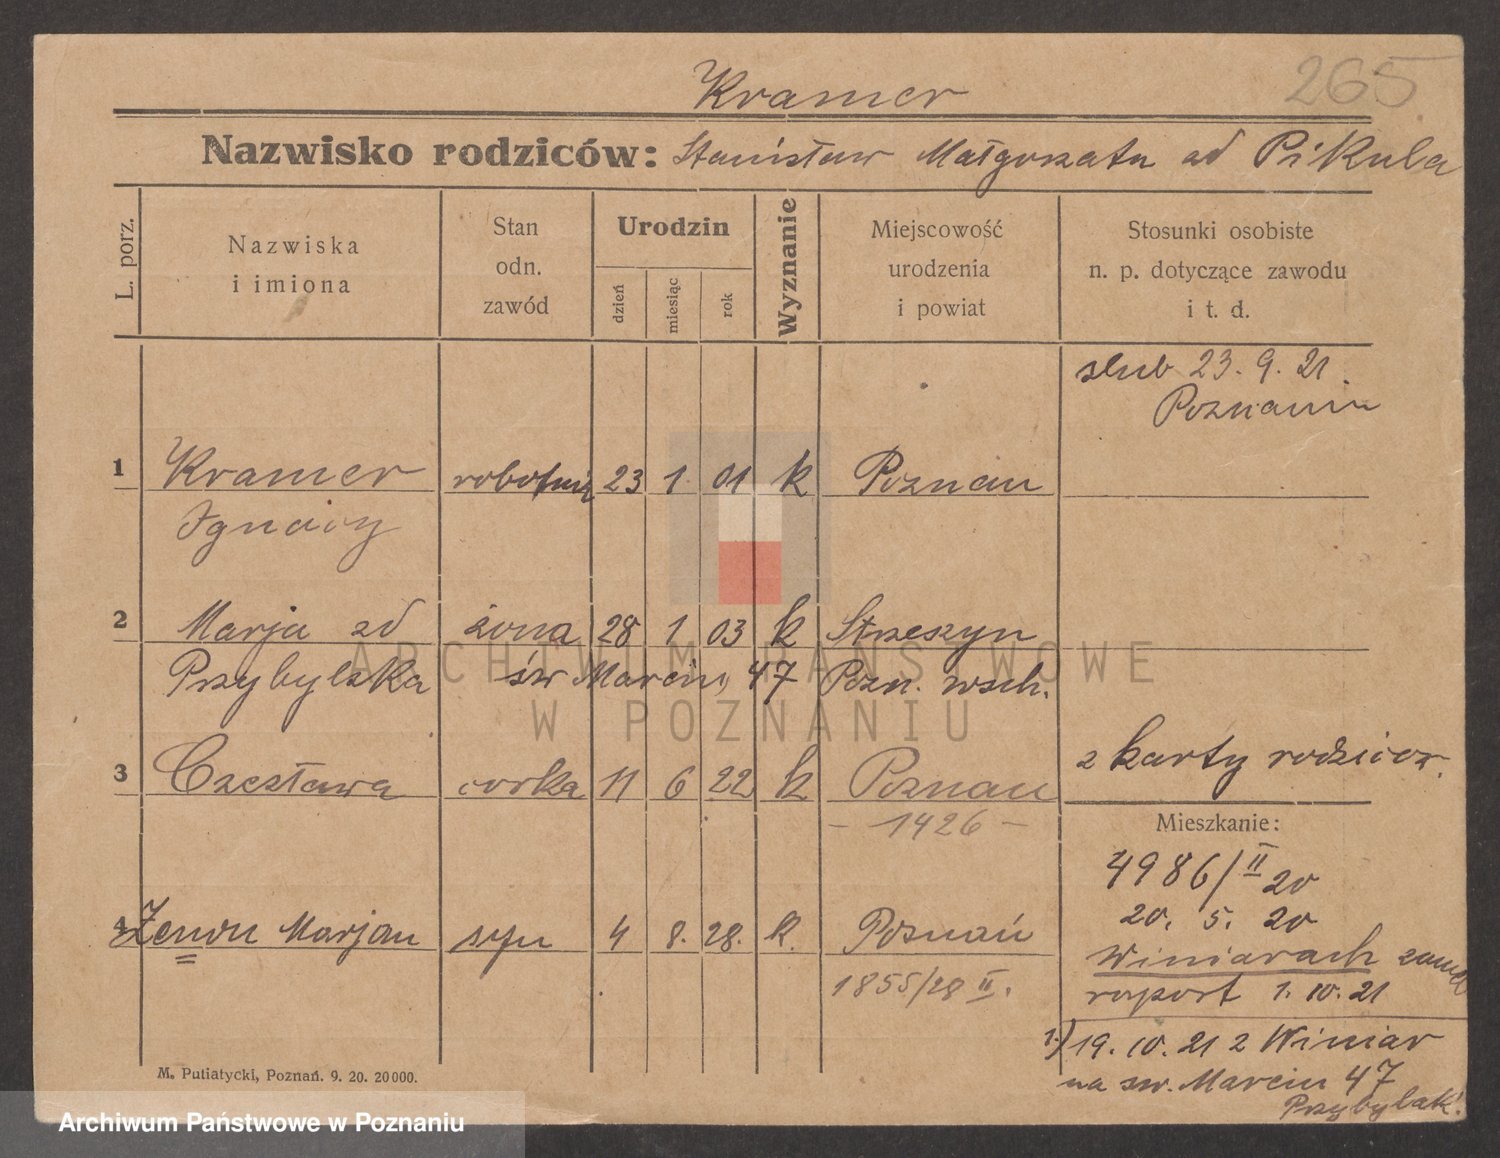 265
Kramer
Nazwisko rodziców: Stanisław Małgorzata zd Pikula
L. porz.
Nazwiska
i imiona
Stan
odn.
zawód
Urodzin
dzień
miesiąc
rok
Wyznanie
Miejscowość
urodzenia
i powiat
Stosunki osobiste
n. p. dotyczące zawodu
i t. d.
slub 23. 9. 21.
Poznaniu
1 Kramer robotnik 23 1. 01 k Poznan
Ignacy
2 Marja zd żona 28 1 03 k Strzeszyn
Przybylska św Marcin 47 Pozn. wsch.
3 Czesława corka 11 6 22 k Poznan
- 1426 -
z karty rodzicow.
Mieszkanie:
4986/II 20
20. 5. 20
Winiarach zam
raport 1. 10. 21
4 Zenon Marjan syn 4 8. 28. k. Poznań
1855/28 II.
1.) 19. 10. 21 z Winiar
na sw. Marcin 47
Przybylak.
M. Putiatycki, Poznań. 9. 20. 20 000.
ARCHIWUM PAŃSTWOWE
W POZNANIU
Archiwum Państwowe w Poznaniu